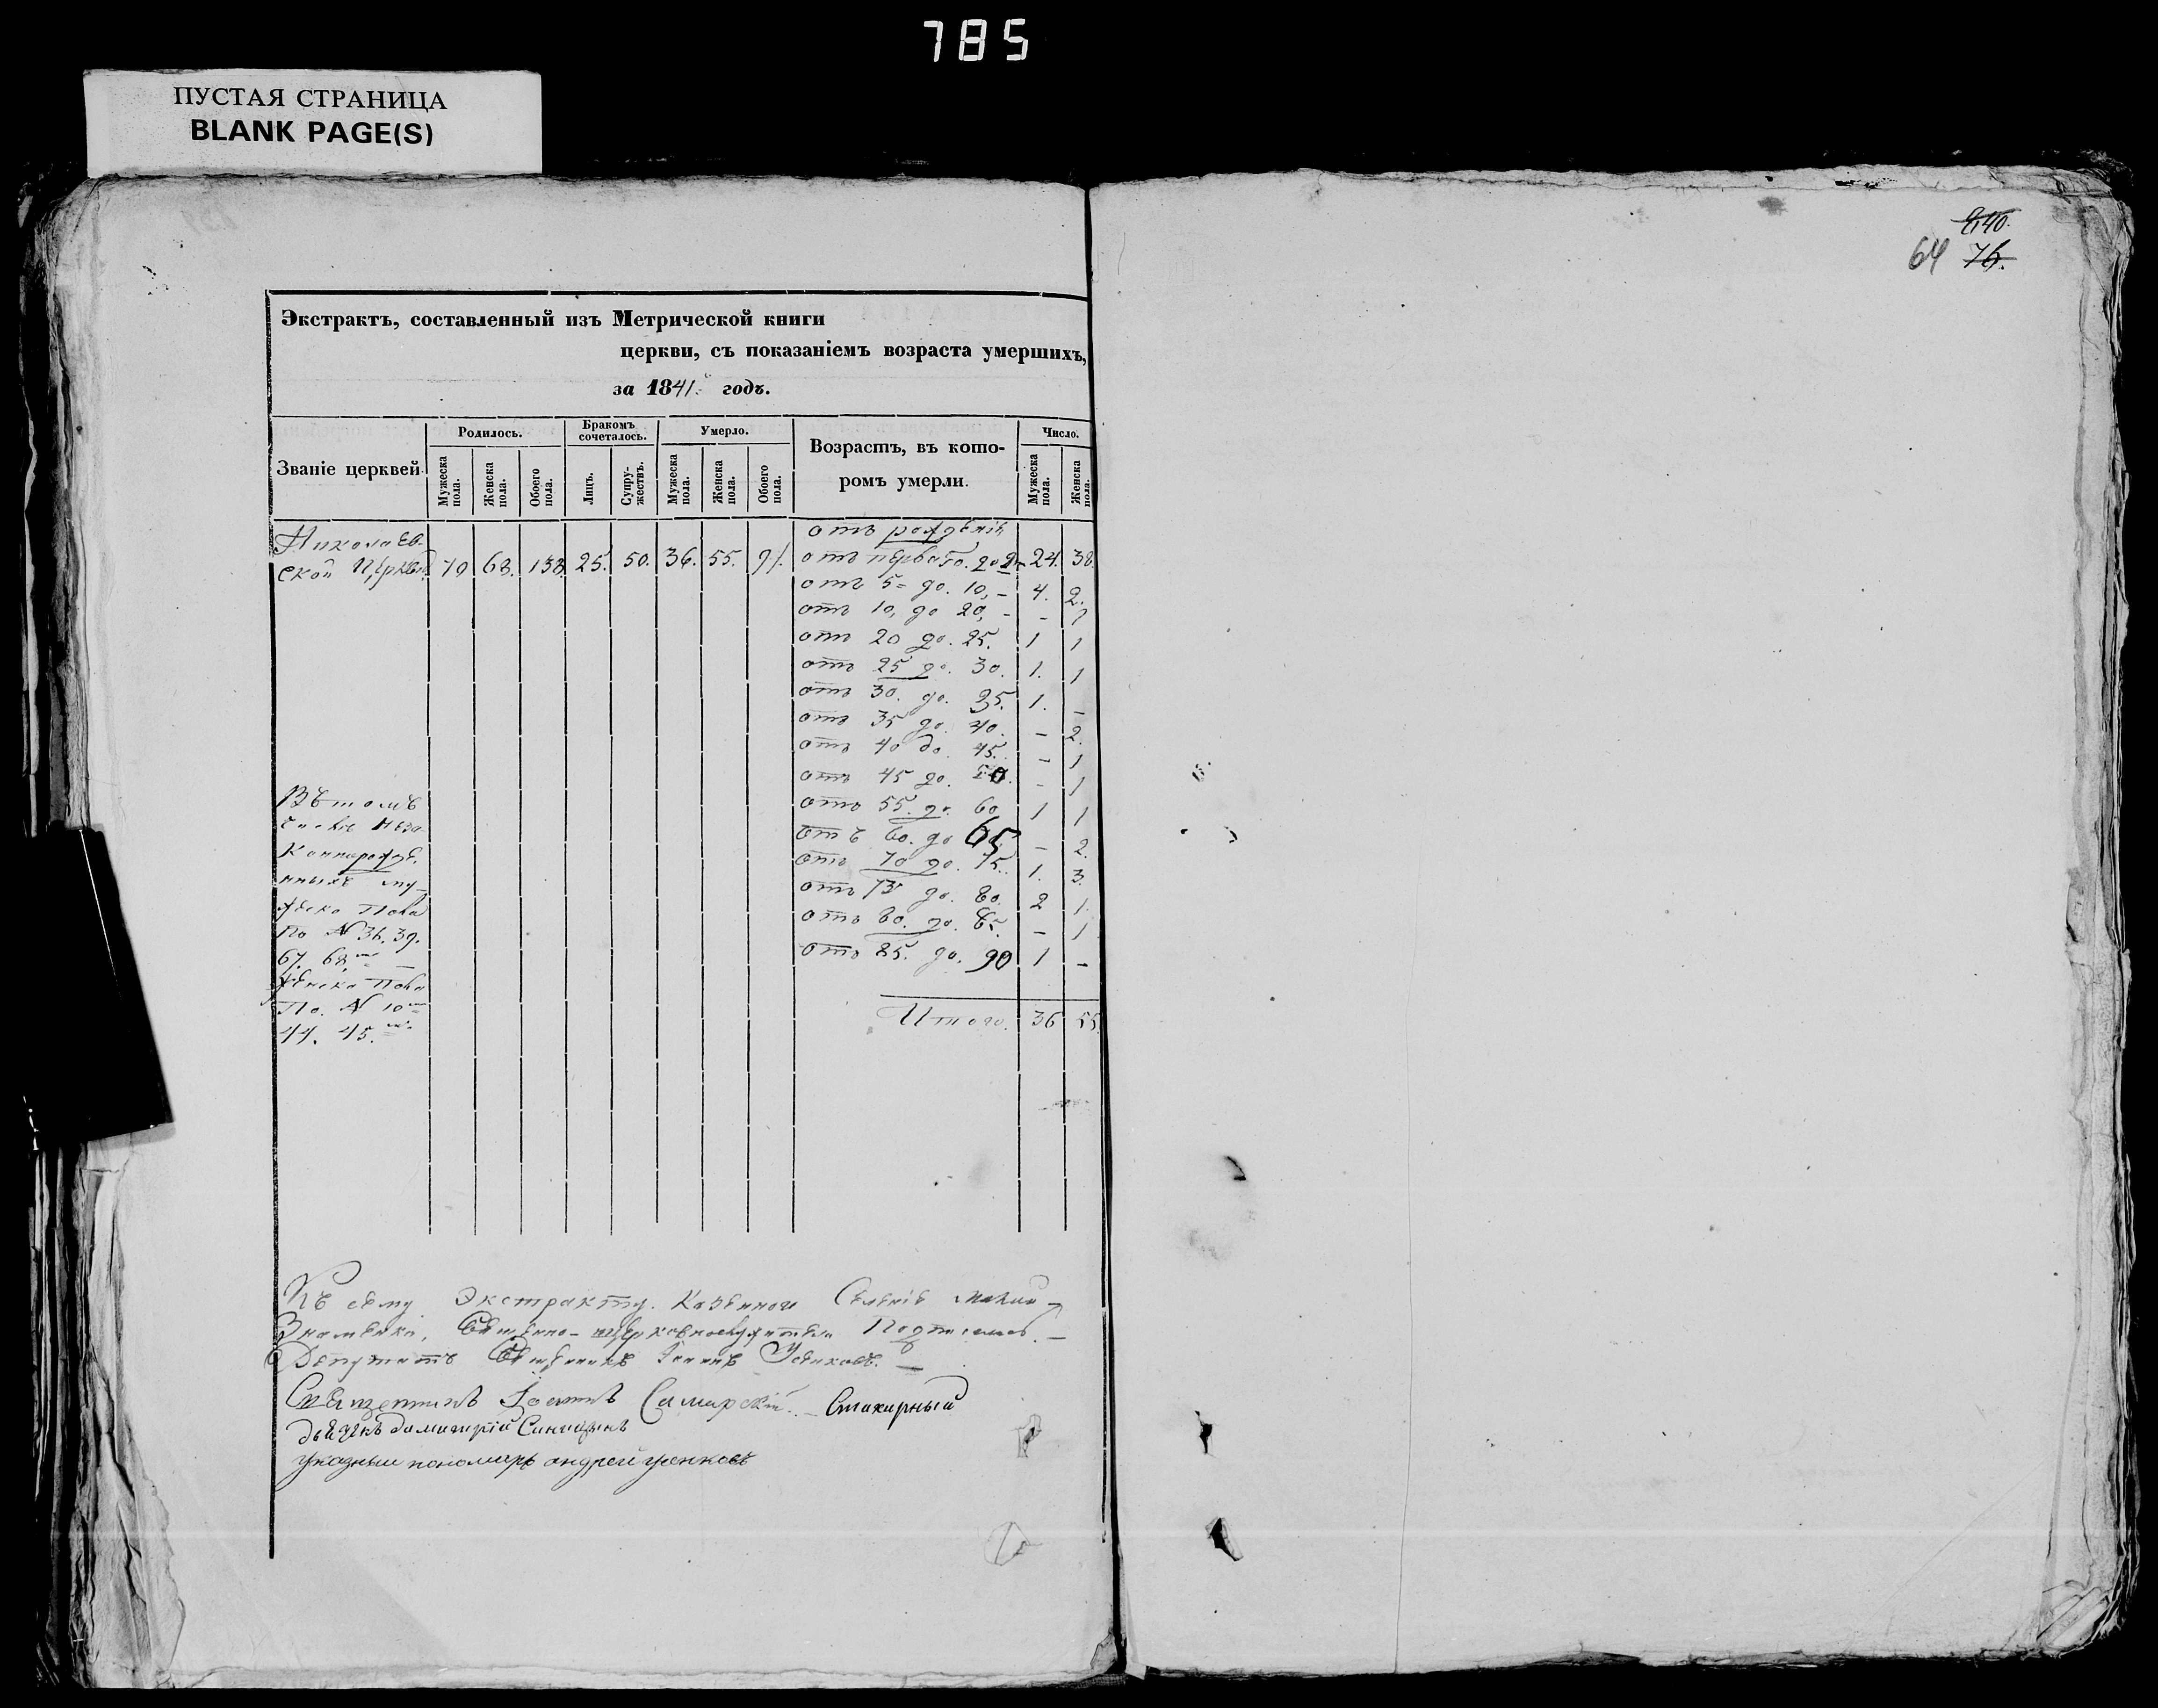 785
ПУСТАЯ СТРАНИЦА
BLANK PAGE(S)
240.
64 76.
Экстрактъ, составленный изъ Метрической книги
церкви, съ показаніемъ возраста умершихъ,
за 1841. годъ.
Званіе церквей
Родилось.
Бракомъ сочеталось.
Умерло.
Возрастъ, въ которомъ умерли.
Число.
Мужеска пола.
Женска пола.
Обоего пола.
Лицъ.
Супружествъ.
Мужеска пола.
Женска пола.
Обоего пола.
Мужеска пола.
Женска пола.
отъ рожденія
Николаев-
ской Церкви 70 68. 138. 25. 50. 36. 55. 91. отъ перваго. до 24. 38.
отъ 5 до. 10, - 4. 2.
отъ 10, до 20, - - 1
отъ 20 до. 25. 1 1
отъ 25 до. 30. 1. 1
отъ 30. до. 35. 1. -
отъ 35 до. 40. - 2.
отъ 40 до. 45. - 1
отъ 45 до. 50. - 1
отъ 55. до. 60 1 1
отъ 60. до 65 - 2.
отъ 70 до. 75. 1. 3.
отъ 75 до. 80. 2 1.
отъ 80. до. 85. - 1
отъ 85. до. 90 1 -
Итого. 36 55.
Въ томъ
числе неза-
коннорожде-
нныхъ му-
жеска пола
По № 36. 39.
67. 68.
женска пола
По. № 10
44. 45.
Къ сему Экстракту. Казеннои Селеніе
Знаменки, Священно-церковнослужители
Депутатъ Священникъ Іоаннъ
Священникъ Іоаннъ Самарскій.
дьячекъ димитрій Синицынъ
указныи пономарь андрей